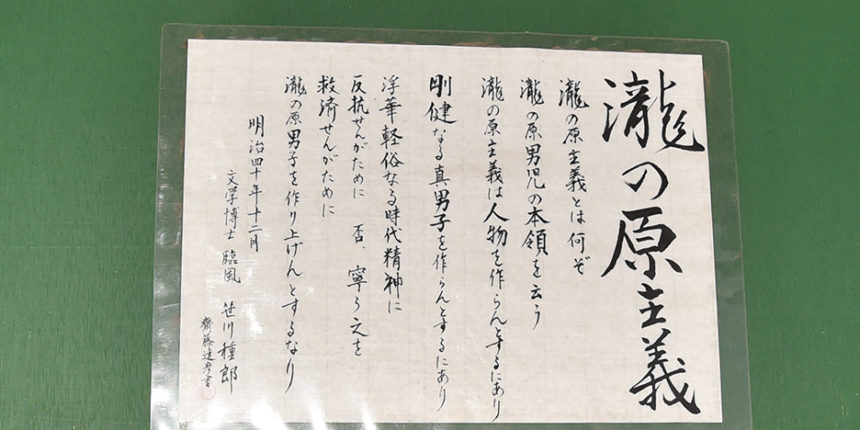 瀧の原主義
瀧の原主義とは何ぞ
瀧の原男児の本領を云う
瀧の原主義は人物を作らんとするにあり
剛健なる真男子を作らんとするにあり
浮華軽俗なる時代精神に
反抗せんがために 否、寧ろ之を
救済せんがために
瀧の原男子を作り上げんとするなり
明治四十年十二月
文学博士 臨風 笹川種郎